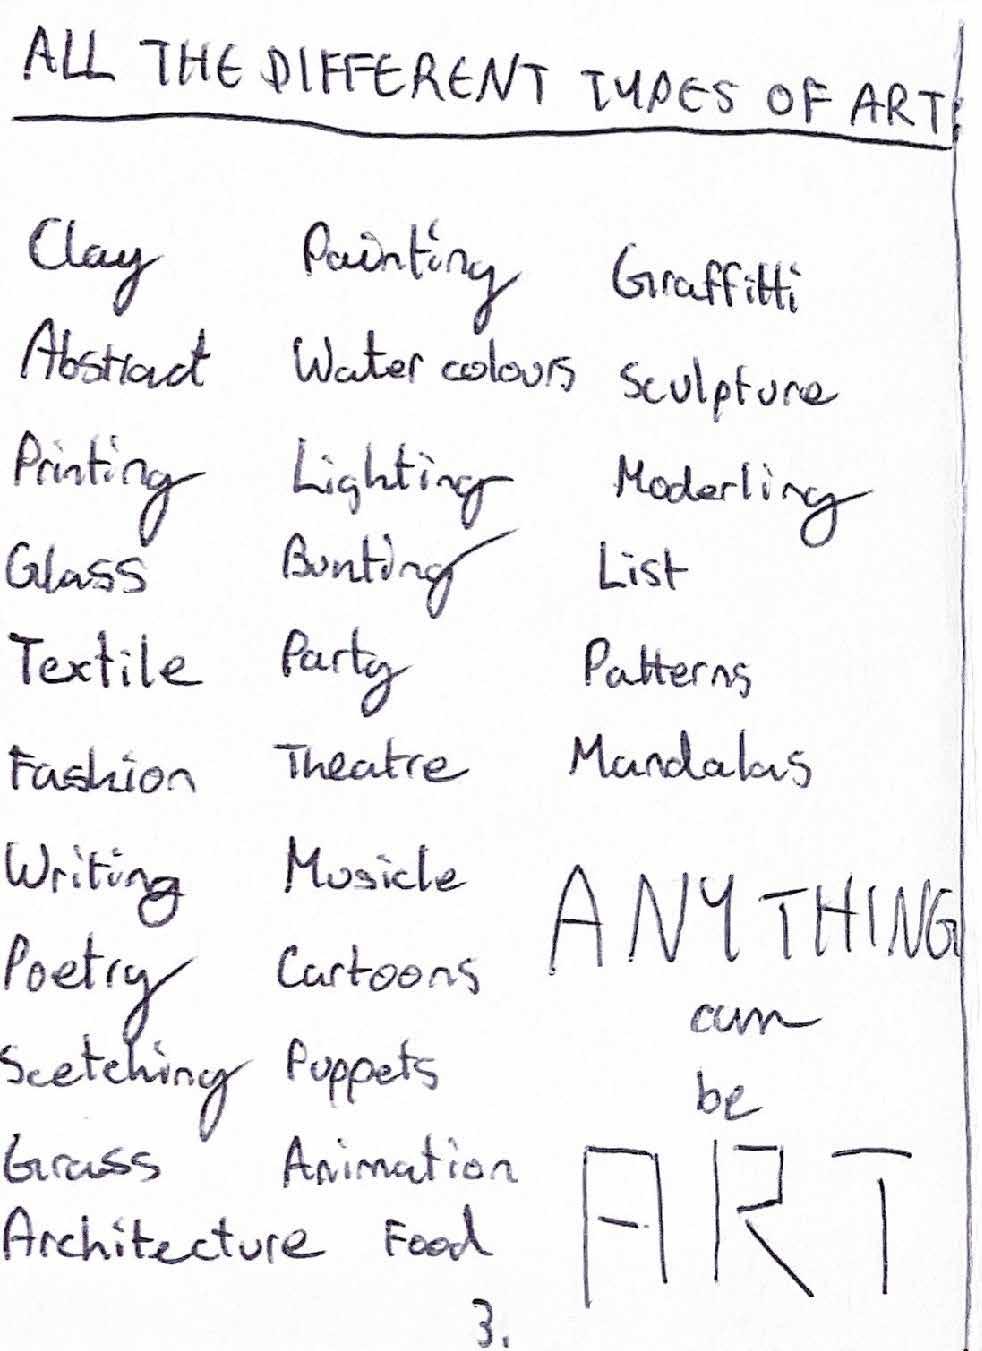 ALL THE DIFFERENT TYPES OF ART:
Clay Painting Graffitti
Abstract Water colours Sculpture
Printing Lighting Moderling
Glass Bunting List
Textile Party Patterns
Fashion Theatre Mandalas
Writing Musicle
Poetry Cartoons
Scetching Puppets
Grass Animation
Architecture Food
ANYTHING
can
be
ART
3.